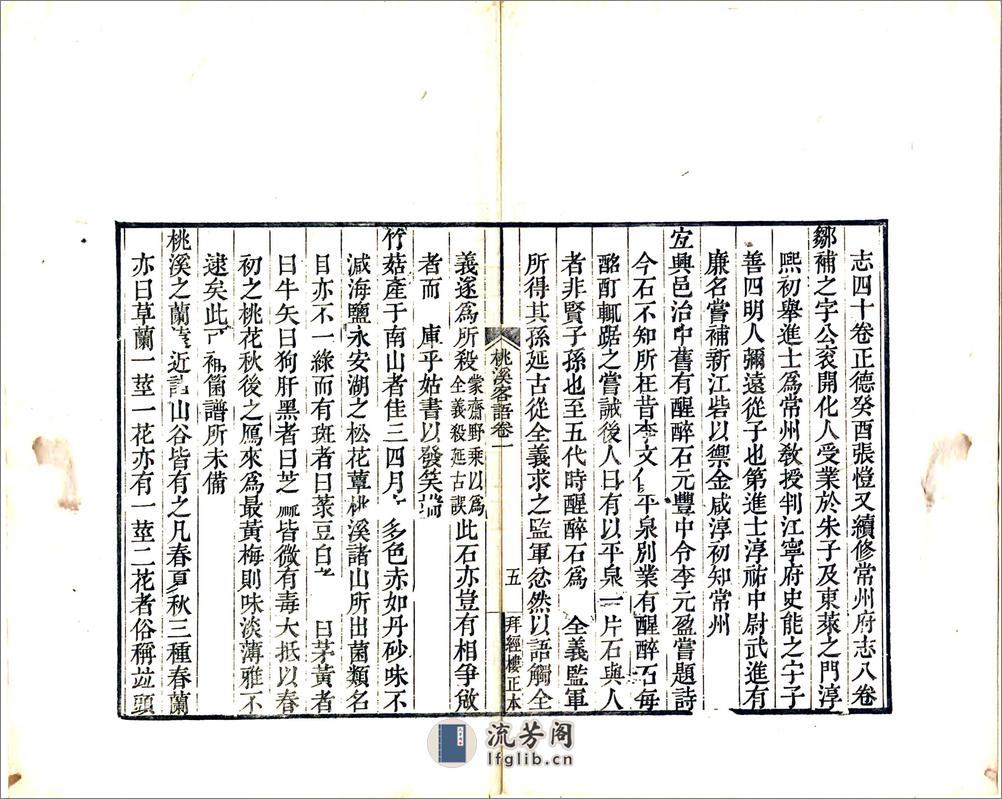 志四十卷正德癸酉張愷又續修常州府志八卷
鄒補之字公衮開化人受業於朱子及東萊之門淳
熙初舉進士爲常州敎授判江寧府史能之字子
善四明人彌遠從子也第進士淳祐中尉武進有
廉名嘗補新江砦以禦金咸淳初知常州
宜興邑治中舊有醒醉石元豐中令李元盈嘗題詩
今石不知所在昔李文平泉別業有醒醉石每
酩酊輒踞之嘗誡後人曰有以平泉一片石與人
者非賢子孫也至五代時醒醉石爲全義監軍
所得其孫延古從全義求之監軍忿然以語觸全
桃溪客語卷一
五
拜經樓正本
義遂爲所殺蒙齋野乘以爲全義殺延古誤此石亦豈有相爭啟
者而庫乎姑書以發笑端
竹菇產于南山者佳三四月多色赤如丹砂味不
減海鹽永安湖之松花蕈桃溪諸山所出菌類名
目亦不一綠而有斑者曰菉豆白曰茅黃者
曰牛矢曰狗肝黑者曰芝皆微有毒大抵以春
初之桃花秋後之鴈來爲最黃梅則味淡薄雅不
逮矣此可補箘譜所未備
桃溪之蘭遠近諸山谷皆有之凡春夏秋三種春蘭
亦曰草蘭一莖一花亦有一莖二花者俗稱竝頭
流芳阁
lfglib.cn